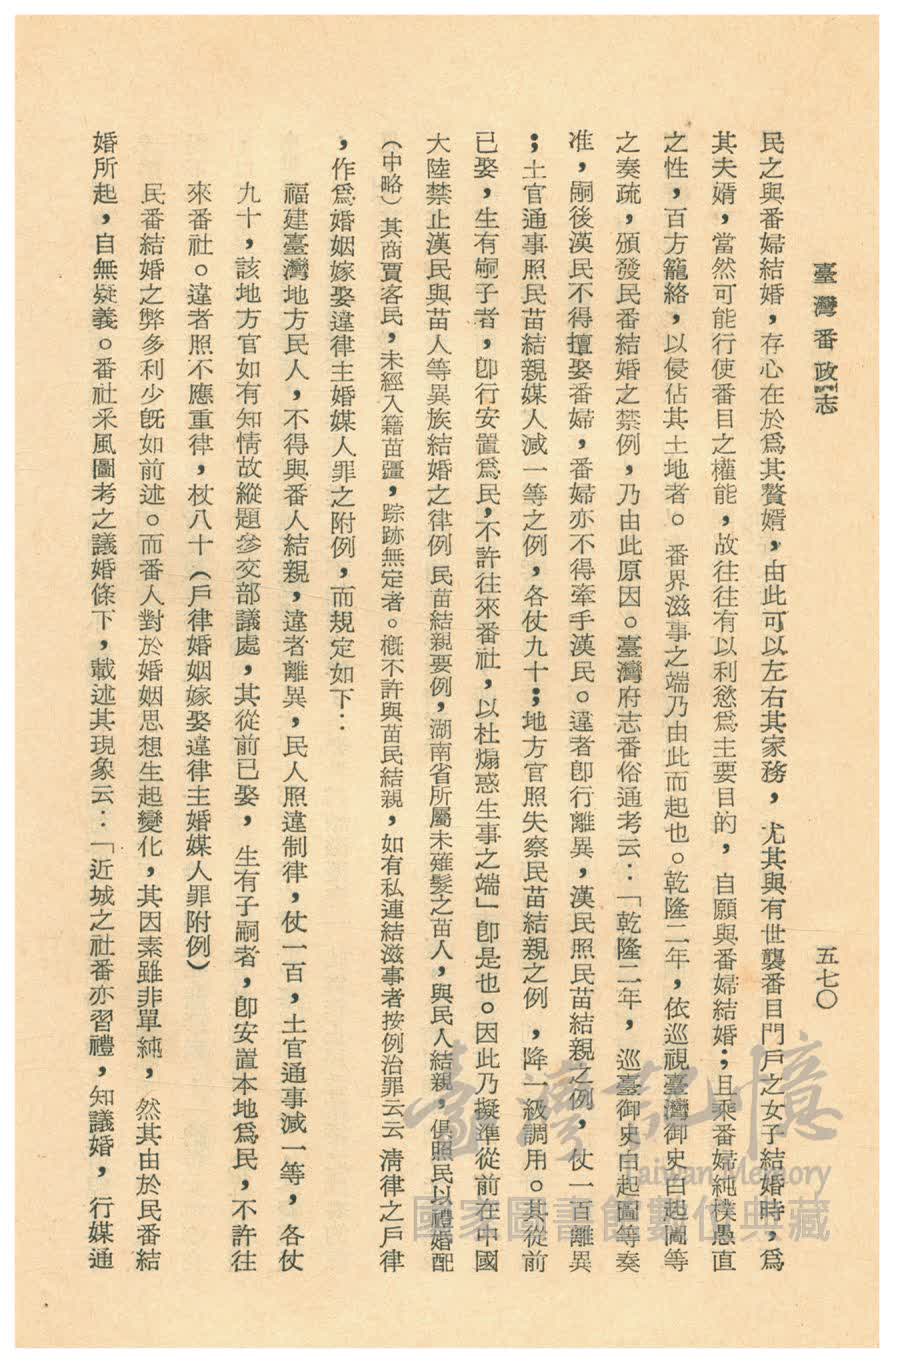 臺灣番政志
五七〇
民之與番婦結婚，存心在於爲其贅婿，由此可以左右其家務，尤其與有世襲番目門戶之女子結婚時，爲
其夫婿，當然可能行使番目之權能，故往往有以利慾爲主要目的，自願與番婦結婚；且乘番婦純樸愚直
之性，百方籠絡，以侵佔其土地者。番界滋事之端乃由此而起也。乾隆二年，依巡視臺灣御史白起圖等
之奏疏，頒發民番結婚之禁例，乃由此原因。臺灣府志番俗通考云：「乾隆二年，巡臺御史白起圖等奏
准，嗣後漢民不得擅娶番婦，番婦亦不得牽手漢民。違者卽行離異，漢民照民苗結親之例，仗一百離異
；土官通事照民苗結親媒人减一等之例，各仗九十；地方官照失察民苗結親之例，降一級調用。其從前
已娶，生有嗣子者，卽行安置爲民，不許往來番社，以杜煽惑生事之端」卽是也。因此乃擬準從前在中國
大陸禁止漢民與苗人等異族結婚之律例民苗結親要例，湖南省所屬未薙髮之苗人，與民人結親，俱照民以禮婚配
（中略）其商賈客民，未經入籍苗疆，踪跡無定者。槪不許與苗民結親，如有私連結滋事者按例治罪云云淸律之戶律
，作爲婚姻嫁娶違律主婚媒人罪之附例，而規定如下：
福建臺灣地方民人，不得與番人結親，違者離異，民人照違制律，仗一百，土官通事減一等，各仗
九十，該地方官如有知情故縱題參交部議處，其從前已娶，生有子嗣者，卽安置本地爲民，不許往
來番社。違者照不應重律，杖八十（戶律婚姻嫁娶違律主婚媒人罪附例）
民番結婚之弊多利少旣如前述。而番人對於婚姻思想生起變化，其因素雖非單純，然其由於民番結
婚所起，自無疑義。番社釆風圖考之議婚條下，載述其現象云：「近城之社番亦習禮，知議婚，行媒通
臺灣記憶
Taiwan Memory
國家圖書館數位典藏